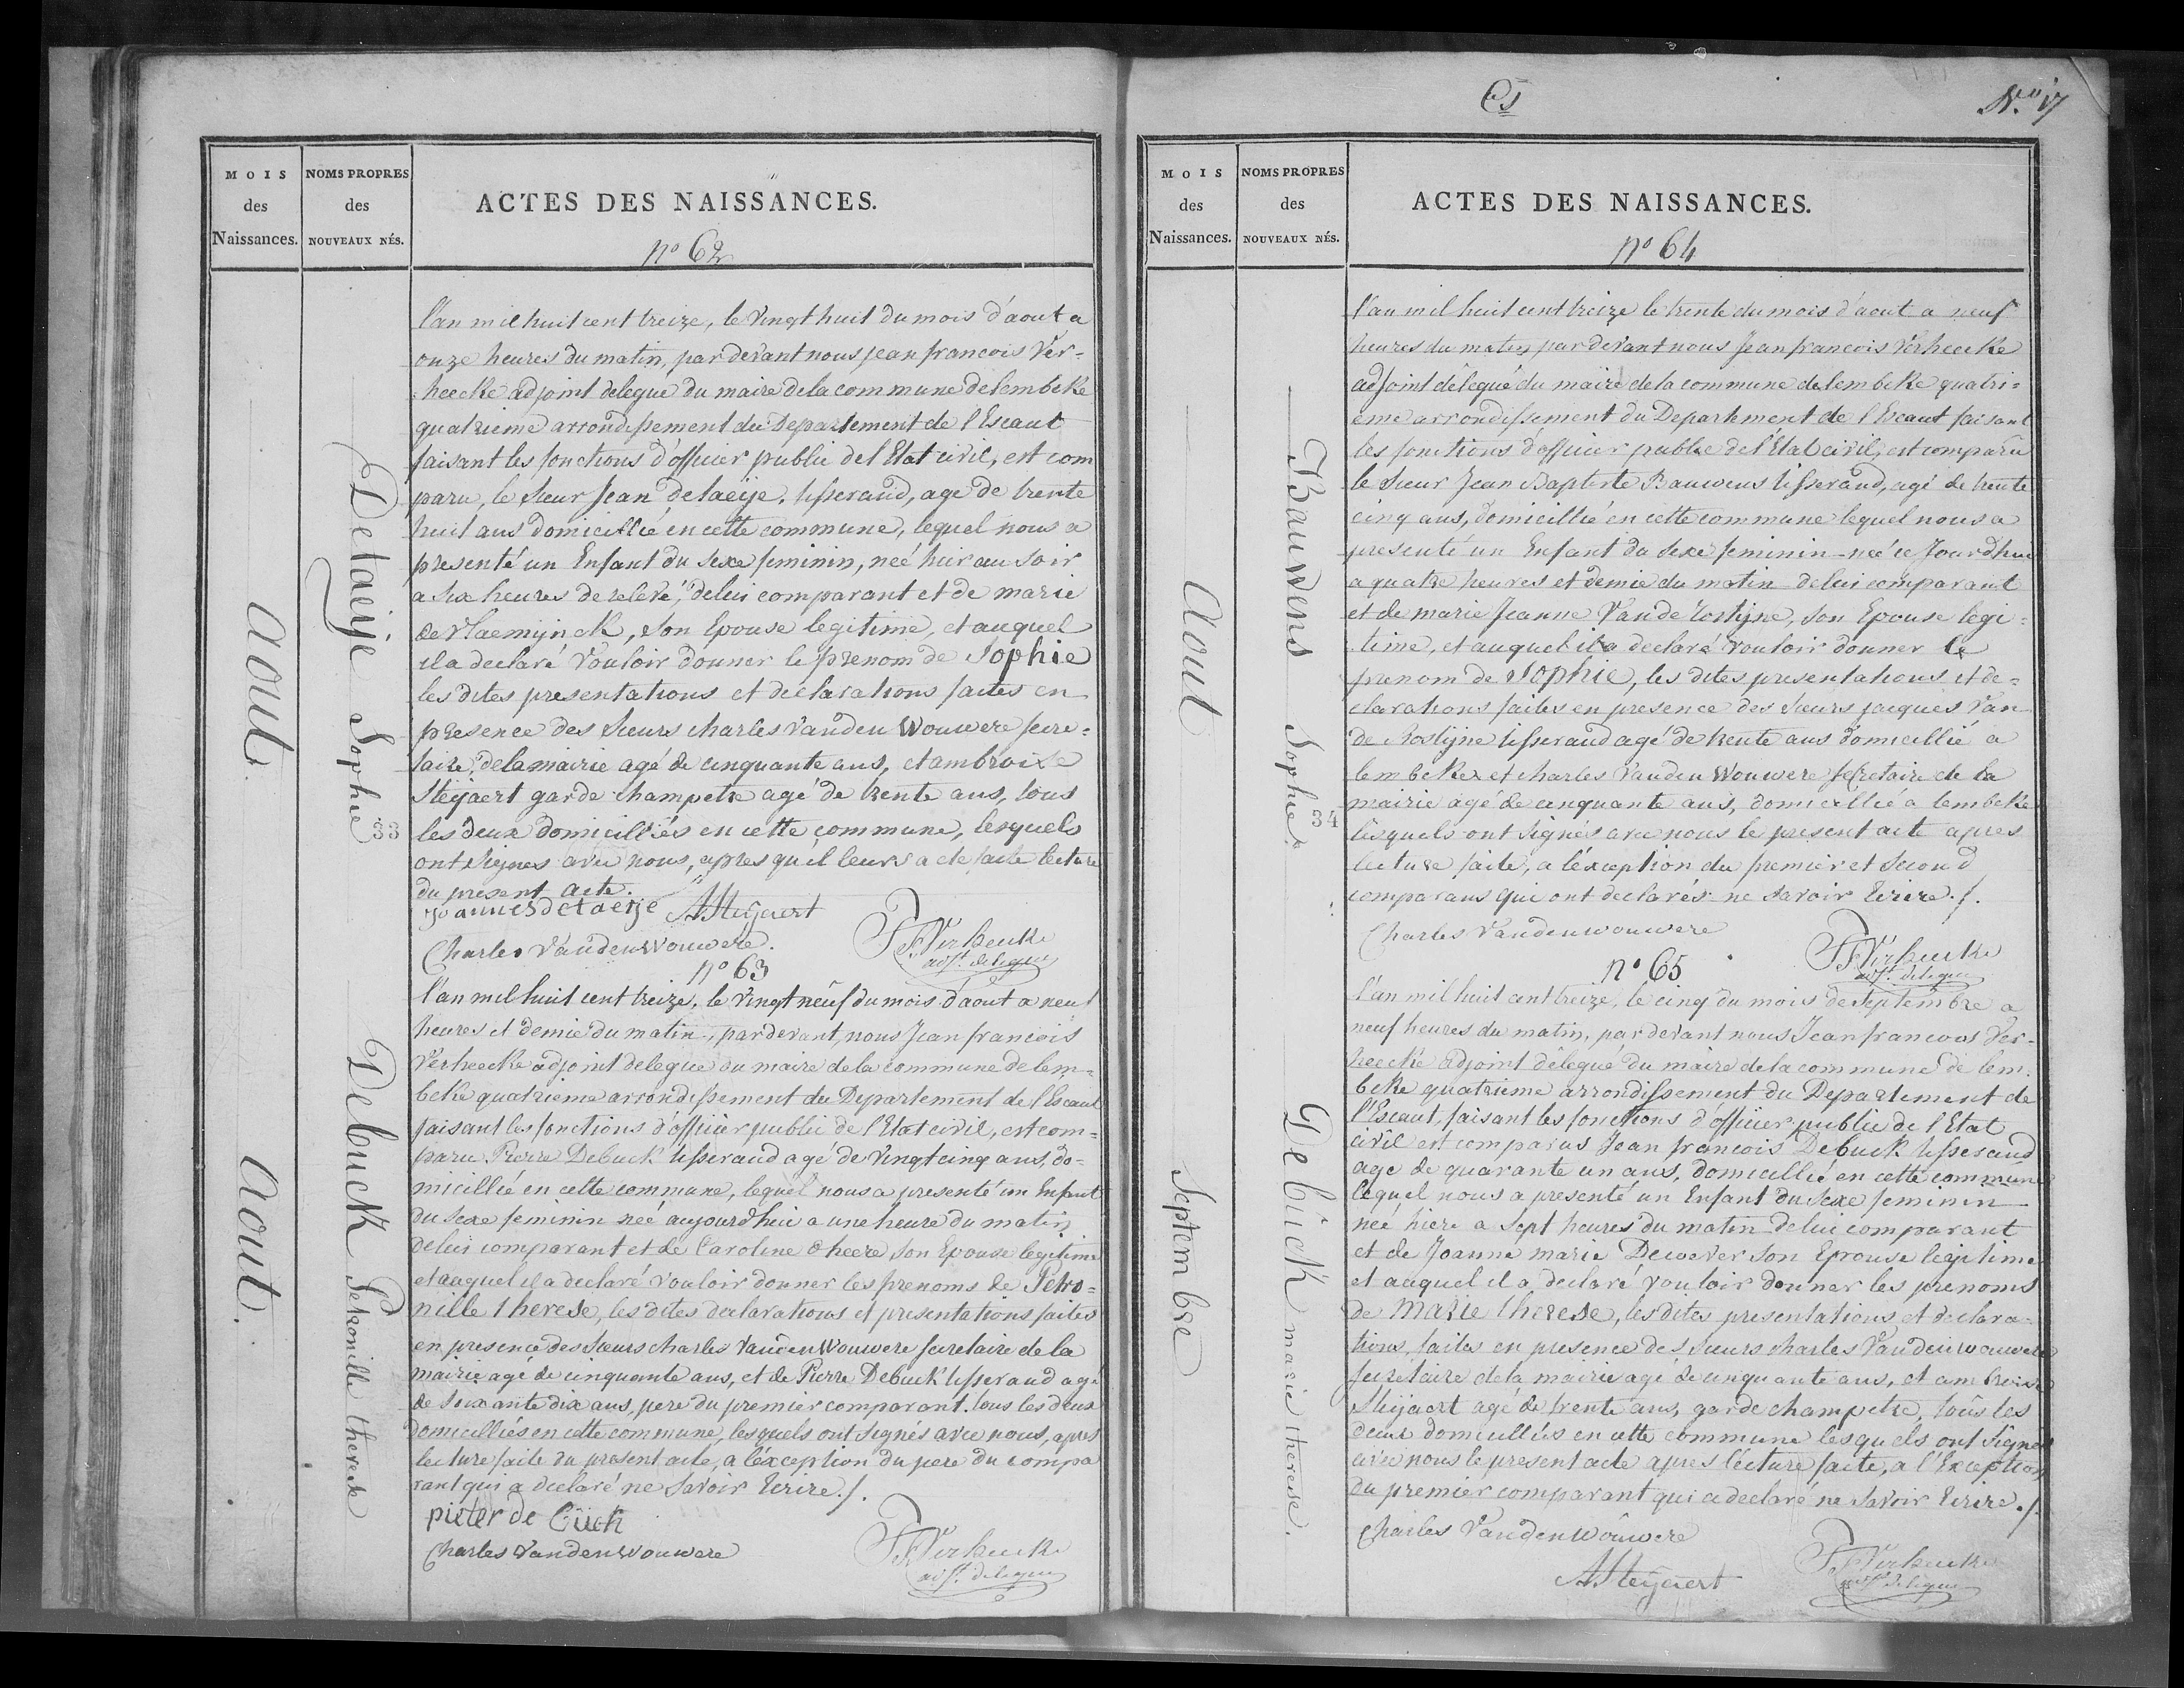 MOIS
des
Naissances.
NOMS PROPRES
des
NOUVEAUX NÉS.
ACTES DES NAISSANCES.
nº 62
aout
Detaeije Sophie
33
l'an mil huit cent treize, le vingt huit du mois d'aout a
onze heures du matin, par devant nous jean francois Ver=
heecke adjoint delegue du maire de la commune de lembeke
quatrieme arrondissement du Departement de l'Escaut
faisant les fonctions d'officier public de l'Etat civil, est com
paru, le Sieur Jean detaeije, tisserand, age de trente
huit ans domicillié en cette commune, lequel nous a
presenté un Enfant du sexe feminin, neé hier au soir
a six heures de relevé, de lui comparant et de marie
de vlaemijnck, son Epouse legitime, et auquel
il a declaré vouloir donner le prenom de Sophie
les dites presentations et declarations faites en
presence des Sieurs charles vanden Wouwere secre=
taire de la mairie agé de cinquante ans, et ambroise
Steijaert garde champetre agé de trente ans, tous
les deux domicilliés en cette commune, lesquels
ont signes avec nous, apres qu'il leurs a ete faite lecture
du present acte.
joannes detaeije ASteijaert
Charles VandenWouwere. JFVerheecke
adjt. delegue
nº 63
aout.
Debuck Petronille therese
l'an mil huit cent treize, le vingt neuf du mois d'aout a neuf
heures et demie du matin, par devant nous Jean francois
Verheecke adjoint delegue du maire de la commune de lem=
beke quatrieme arrondissement du Departement de l'Escaut
faisant les fonctions d'officier public de l'Etat civil, est com=
paru Pierre Debuck tisserand agé de vingt cinq ans, do=
micillié en cette commune, lequel nous a presenté un Enfant
du sexe feminin neé aujourd'hui a une heure du matin
de lui comparant et de Caroline dheere son Epouse legitime
et auquel il a declaré vouloir donner les prenoms de Petro=
nille therese, les dites declarations et presentations faites
en presence des Sieurs charles VandenWouwere secretaire de la
mairie agé de cinquante ans, et de Pierre Debuck tisserand agé
de soixante dix ans, pere du premier comparant. tous les deux
domicilliés en cette commune, lesquels ont signés avec nous, apres
lecture faite du present acte, a l'éxception du pere du compa
rant qui a declaré ne savoir Ecrire ./.
pieter de Buck
Charles VandenWouwere JFVerheecke
adjt. delegue
MOIS
des
Naissances.
NOMS PROPRES
des
NOUVEAUX NÉS.
ACTES DES NAISSANCES.
nº 64
aout
Bauwens Sophie
34
l'an mil huit cent treize le trente du mois d'aout a neuf
heures du matin par devant nous Jean francois Verheecke
adjoint délegué du maire de la commune de lembeke quatri=
eme arrondissement du Departement de l'Escaut faisant
les fonctions d'officier public de l'Etat civil, est comparu
le Sieur Jean Baptiste Bauwens tisserand, agé de trente
cinq ans, domicillié en cette commune lequel nous a
presenté un Enfant du sexe feminin neé ce Jourdhui
a quatre heures et demie du matin de lui comparant
et de marie Jeanne Vande Rostijne, son Epouse legi=
time, et auquel il a declaré vouloir donner le
prenom de Sophie, les dites presentations et de=
clarations faites en presence des Sieurs jacques Van
de Rostijne tisserand agé de trente ans domicillié a
lembeke et charles VandenWouwere secretaire de la
mairie agé de cinquante ans, domicillié a lembeke
lesquels ont signés avec nous le present acte apres
lecture faite, a l'éxception du premier et second
comparans qui ont declarés ne savoir Ecrire ./.
Charles Vandenwouwere JFVerheecke
adjt. delegue
nº 65
Septembre
Debuck marie therese.
l'an mil huit cent treize, le cinq du mois de septembre a
neuf heures du matin, par devant nous Jean francois Ver=
heecke adjoint délegué du maire de la commune de lem
beke quatrieme arrondissement du Departement de
l'Escaut, faisant les fonctions d'officier public de l'Etat
civil est comparus Jean francois Debuck tisserand
age de quarante un ans, domicillié en cette commune
lequel nous a presenté un Enfant du sexe feminin
neé hiere a sept heures du matin de lui comparant
et de Joanne marie Dewever son Epouse legitime
et auquel il a declaré vouloir donner les prenoms
de Marie therese, les dites presentations et declara=
tions, faites en presence des Sieurs charles Vandenwouwere
secretaire de la mairie agé de cinquante ans, et ambroise
Steijaert agé de trente ans, garde champetre, tous les
deux domicilliés en cette commune lesquels ont signes
avec nous le present acte apres lécture faite, a l'Exception
du premier comparant qui a declaré ne savoir Ecrire ./.
Charles VandenWouwere
ASteijaert JFVerheecke
adjt. delegue